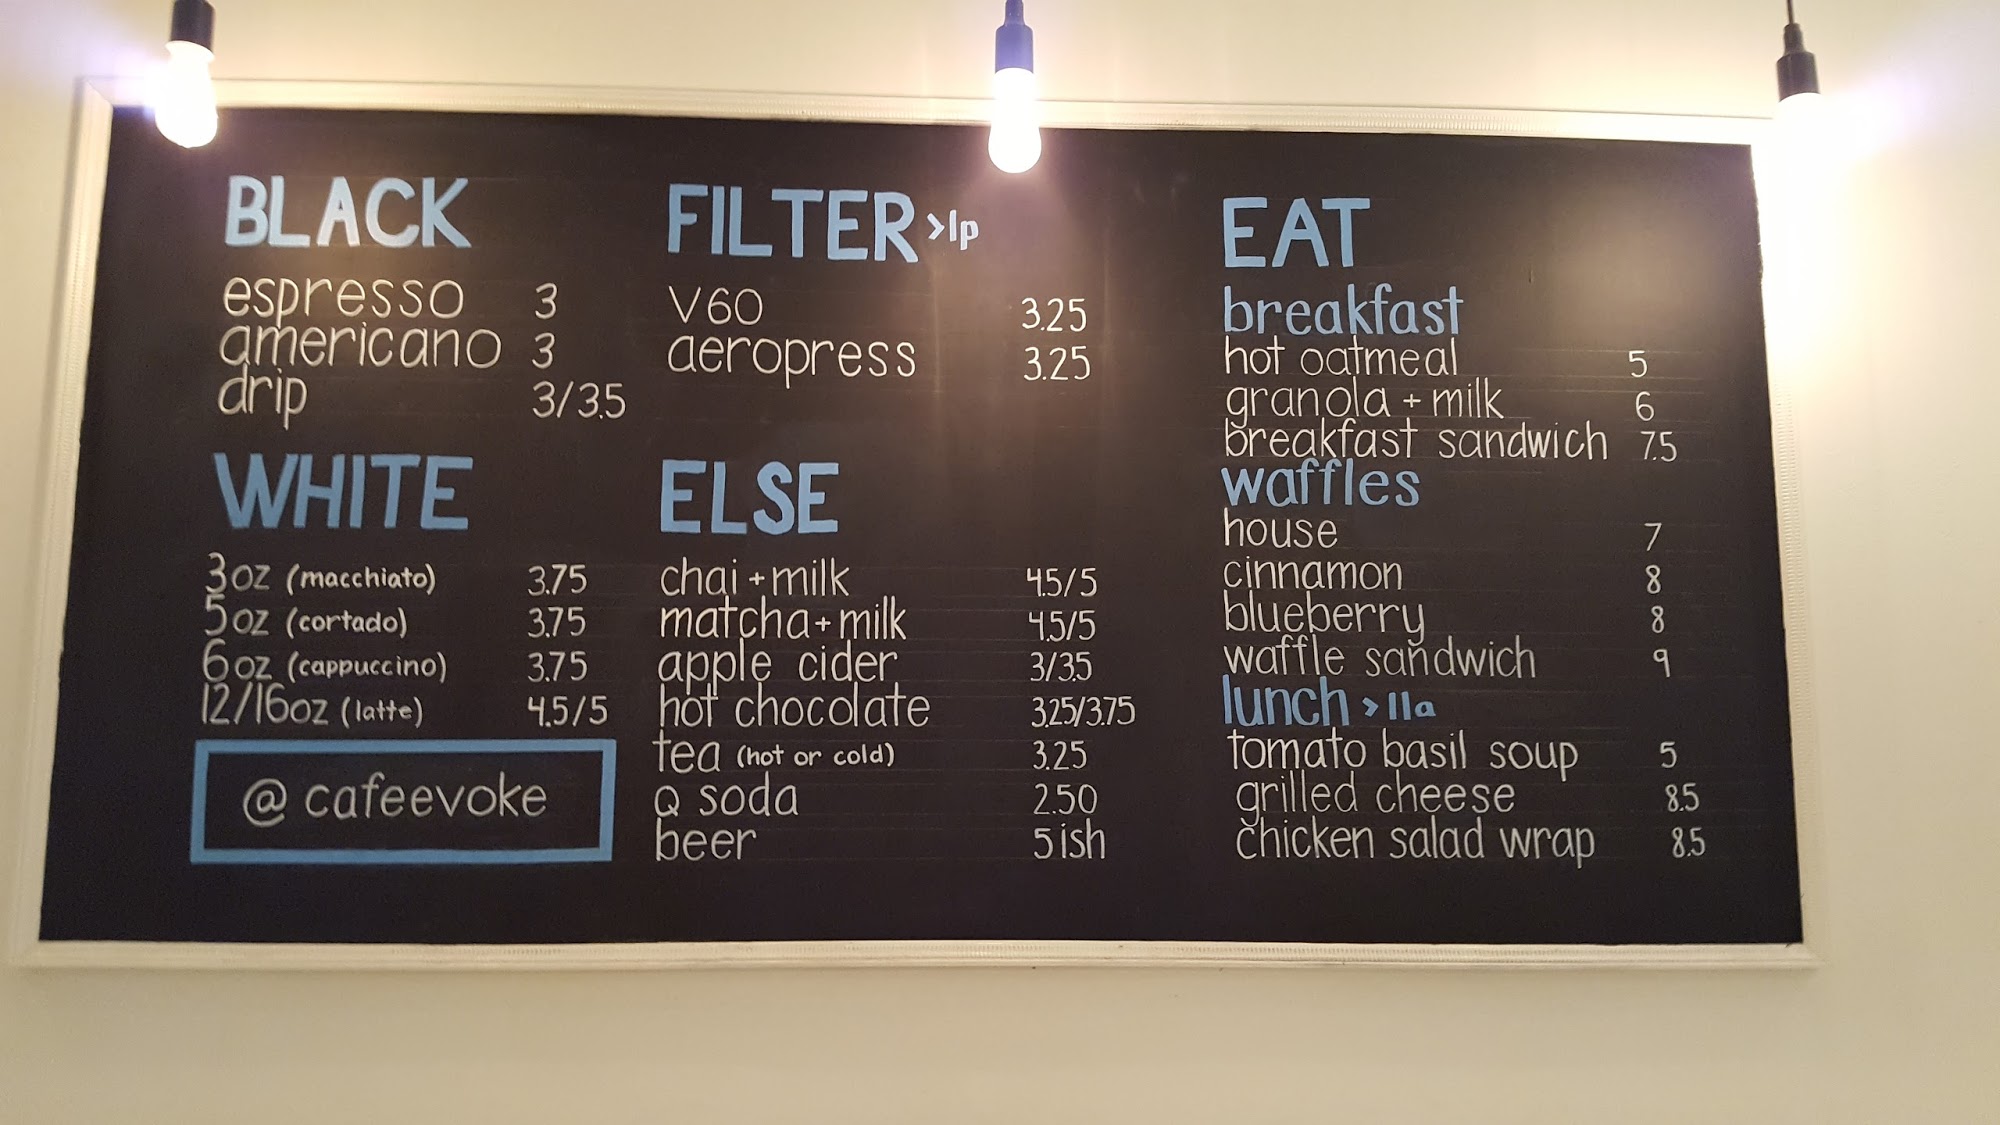 BLACK
espresso 3
americano 3
drip 3/3.5
WHITE
3oz (macchiato) 3.75
5oz (cortado) 3.75
6oz (cappuccino) 3.75
12/16oz (latte) 4.5/5
@cafeevoke
FILTER >1p
V60 3.25
aeropress 3.25
ELSE
chai + milk 4.5/5
matcha + milk 4.5/5
apple cider 3/3.5
hot chocolate 3.25/3.75
tea (hot or cold) 3.25
Q soda 2.50
beer 5ish
EAT
breakfast
hot oatmeal 5
granola + milk 6
breakfast sandwich 7.5
waffles
house 7
cinnamon 8
blueberry 8
waffle sandwich 9
lunch >11a
tomato basil soup 5
grilled cheese 8.5
chicken salad wrap 8.5